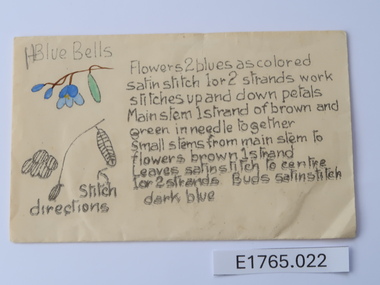 Blue Bells
Flowers 2 blues as colored
satin stitch 1 or 2 strands work
stitches up and down petals
Main stem 1 strand of brown and
Green in needle together
Small stems from main stem to
flowers brown 1 strand
Leaves satin stitch to centre
1 or 2 strands Buds satin stitch
dark blue
Stitch
directions
E1765.022